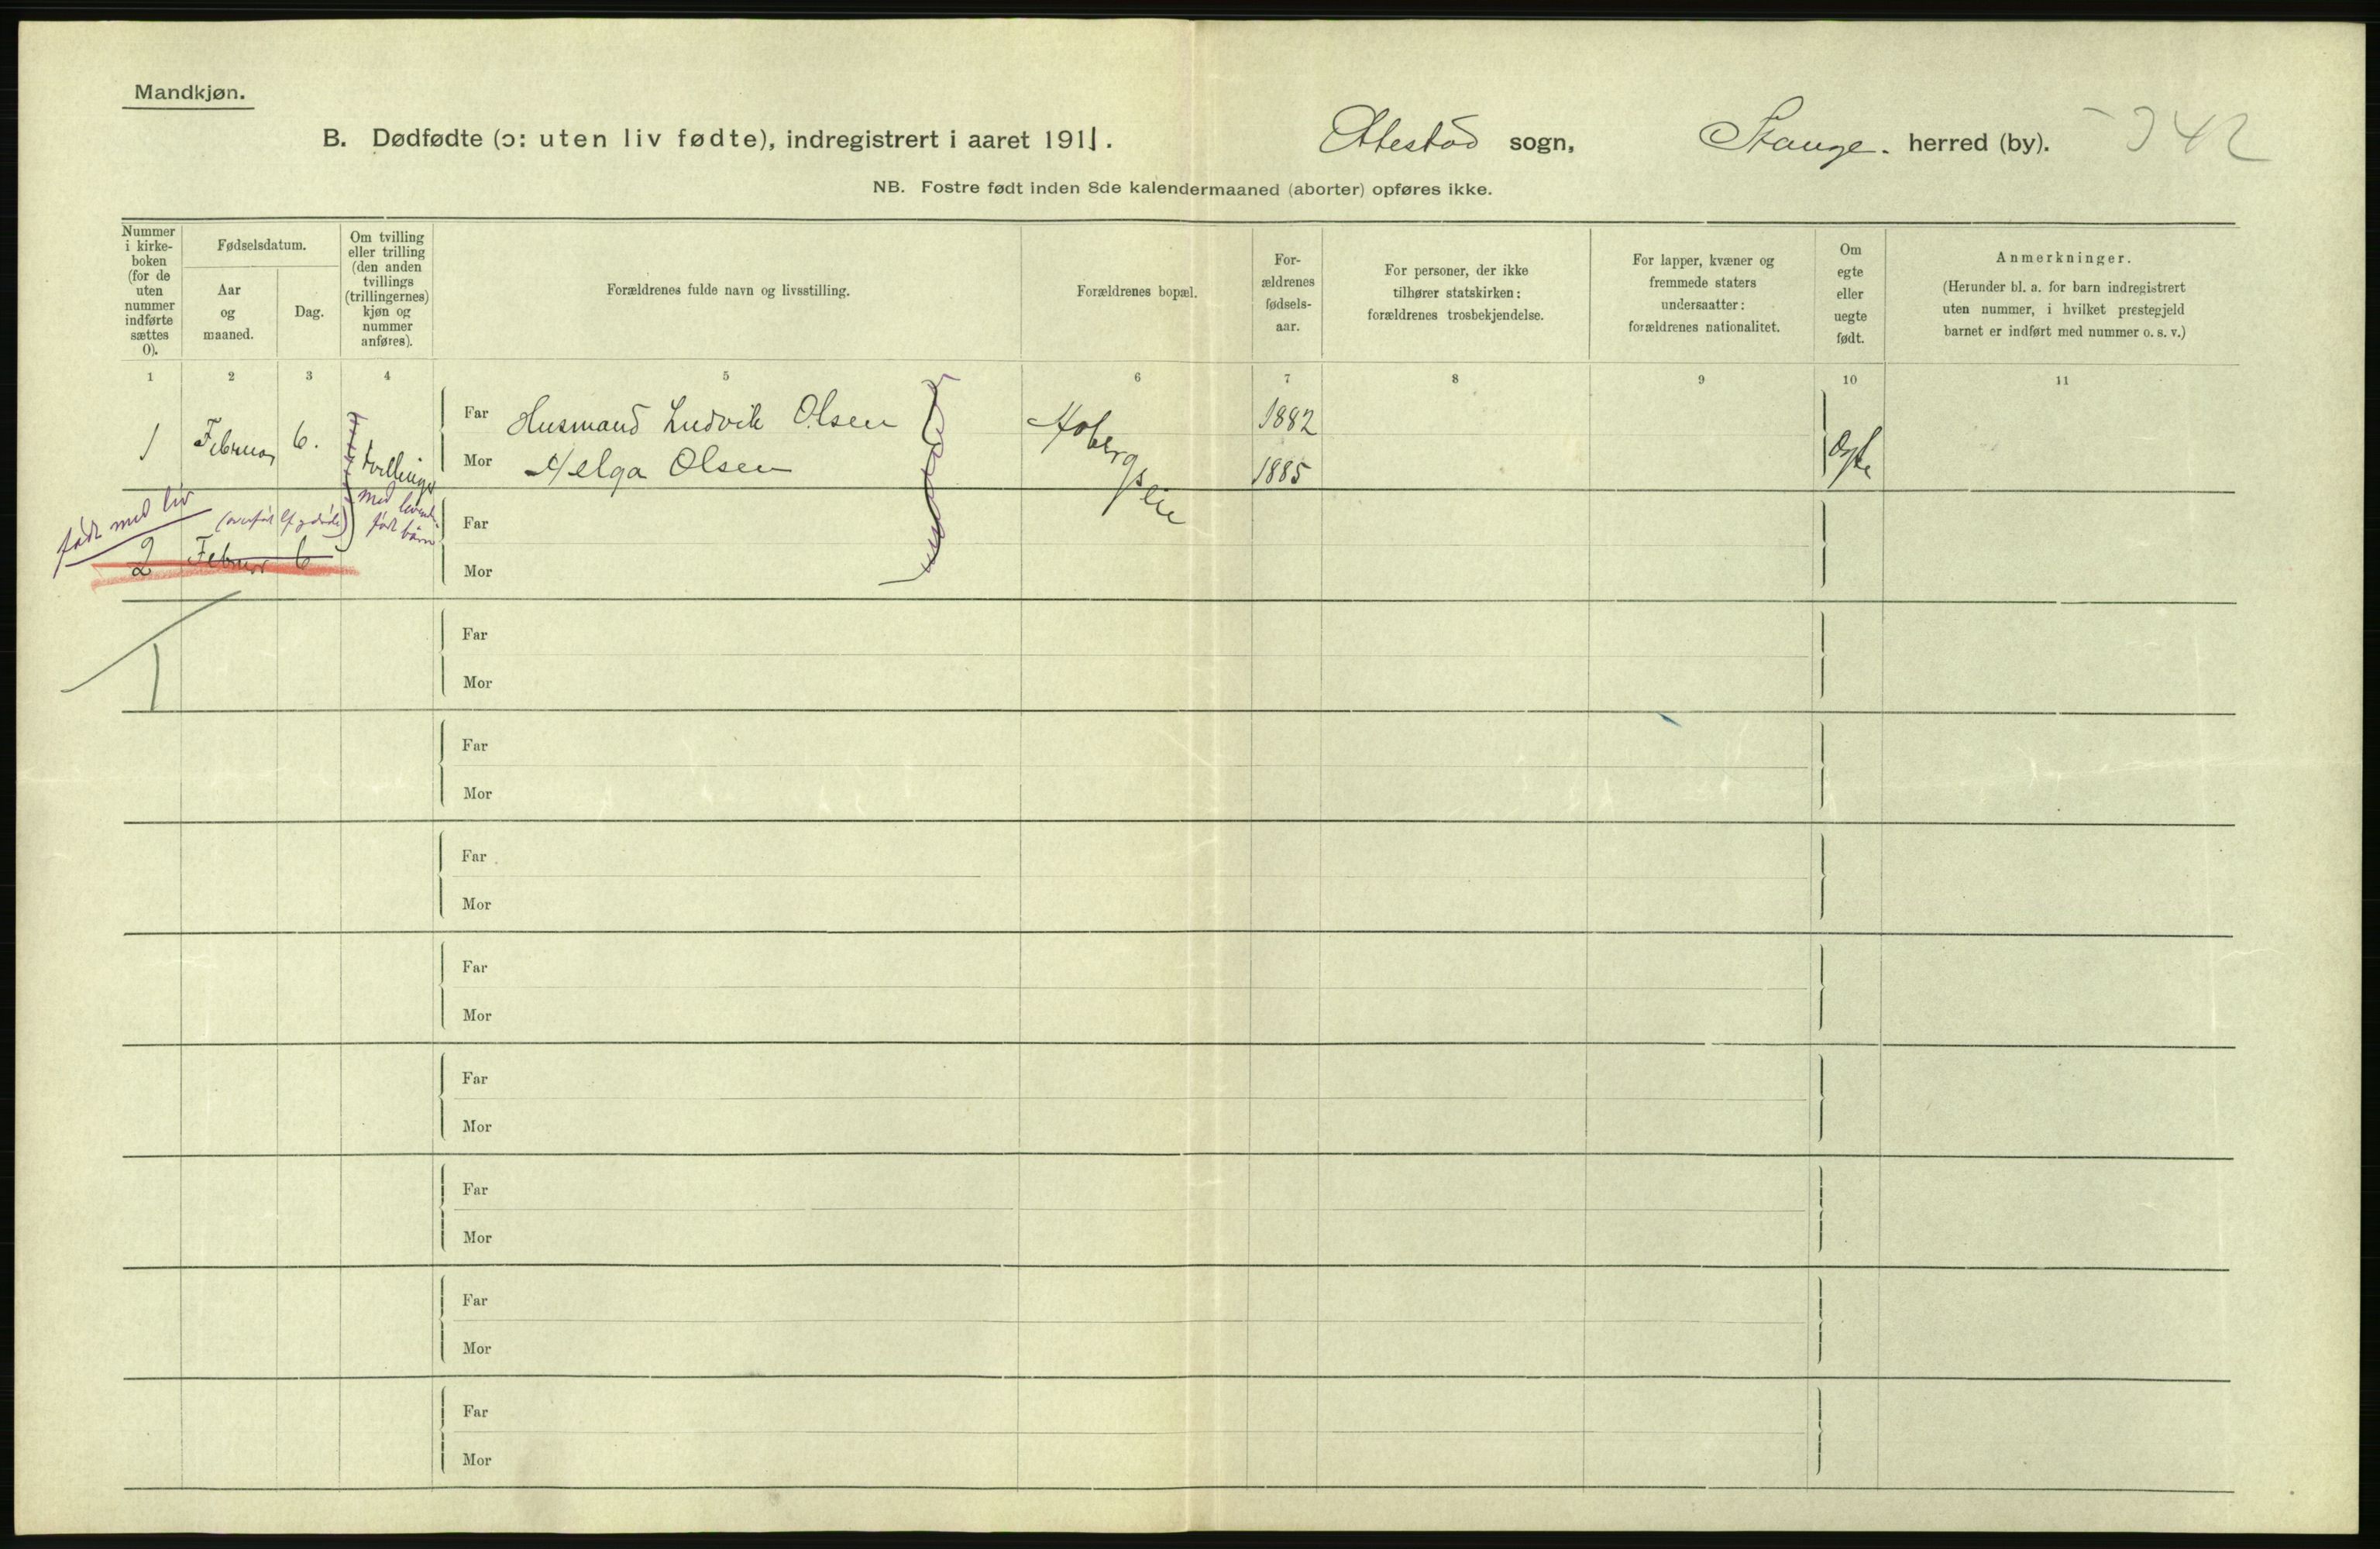 Mandkjøn.
B. Dødfødte (ɔ: uten liv fødte), indregistrert i aaret 1911. Ottestad sogn, Stange. herred (by). 342
NB. Fostre født inden 8de kalendermaaned (aborter) opføres ikke.
Nummer
i kirke-
boken
(for de
uten
nummer
indførte
sættes
0).
Fødselsdatum.
Aar
og
maaned.
Dag.
Om tvilling
eller trilling
(den anden
tvillings
(trillingernes)
kjøn og
nummer
anføres).
Forældrenes fulde navn og livsstilling.
Forældrenes bopæl.
For-
ældrenes
fødsels-
aar.
For personer, der ikke
tilhører statskirken:
forældrenes trosbekjendelse.
For lapper, kvæner og
fremmede staters
undersaatter:
forældrenes nationalitet.
Om
egte
eller
uegte
født.
Anmerkninger.
(Herunder bl. a. for barn indregistrert
uten nummer, i hvilket prestegjeld
barnet er indført med nummer o. s. v.)
1 2 3 4 5 6 7 8 9 10 11
1 Februar 6. tvillinger Far Husmand Ludvik Olsen 1882
Mor Helga Olsen 1885 Egte
født med liv
med levende
født barn
Far
2 Februar 6
Mor
Far
1
Mor
Far
Mor
Far
Mor
Far
Mor
Far
Mor
Far
Mor
Far
Mor
Far
Mor